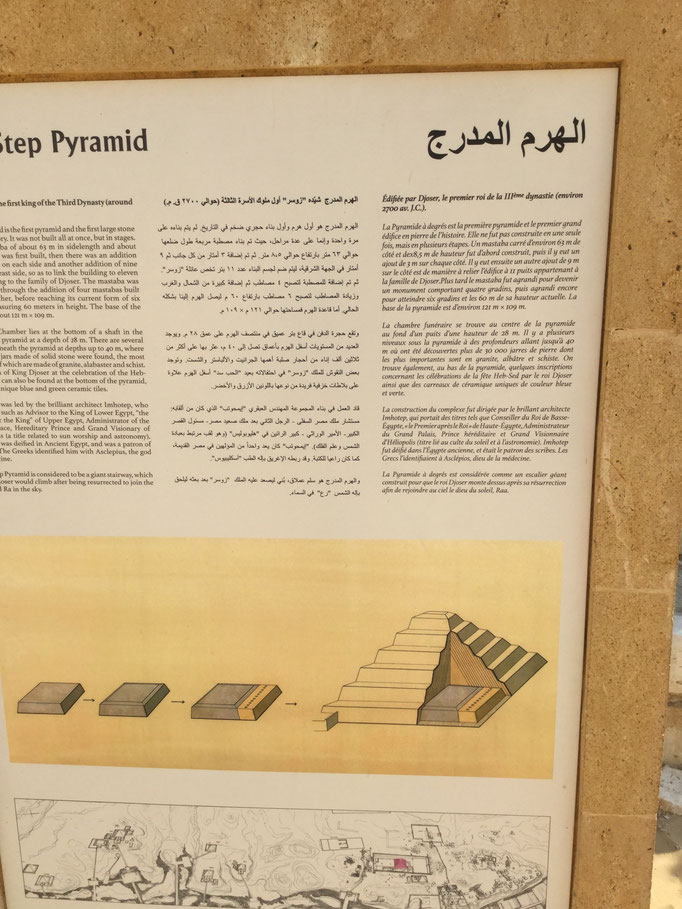 Step Pyramid
الهرم المدرج
the first king of the Third Dynasty (around
d is the first pyramid and the first large stone
ry. It was not built all at once, but in stages.
ba of about 63 m in sidelength and about
was first built, then there was an addition
on each side and another addition of nine
east side, so as to link the building to eleven
ng to the family of Djoser. The mastaba was
through the addition of four mastabas built
her, before reaching its current form of six
asuring 60 meters in height. The base of the
out 121 m × 109 m.
Chamber lies at the bottom of a shaft in the
pyramid at a depth of 28 m. There are several
neath the pyramid at depths up to 40 m, where
jars made of solid stone were found, the most
f which are made of granite, alabaster and schist.
s of King Djoser at the celebration of the Heb-
can also be found at the bottom of the pyramid,
nique blue and green ceramic tiles.
was led by the brilliant architect Imhotep, who
such as Advisor to the King of Lower Egypt, "the
the King" of Upper Egypt, Administrator of the
ace, Hereditary Prince and Grand Visionary of
s (a title related to sun worship and astonomy).
was deified in Ancient Egypt, and was a patron of
The Greeks identified him with Asclepius, the god
ine.
p Pyramid is considered to be a giant stairway, which
oser would climb after being resurrected to join the
d Ra in the sky.
الهرم المدرج شيّده "زوسر" أول ملوك الأسرة الثالثة (حوالي ٢٧٠٠ ق. م.)
الهرم المدرج هو أول هرم وأول بناء حجري ضخم في التاريخ. لم يتم بناءه على
مرة واحدة وإنما على عدة مراحل، حيث تم بناء مصطبة مربعة طول ضلعها
حوالي ٦٣ متر بارتفاع حوالي ٨،٥ متر. ثم تم إضافة ٣ أمتار من كل جانب ثم ٩
أمتار في الجهة الشرقية، ليتم ضم لجسم البناء عدد ١١ بئر تخص عائلة "زوسر".
ثم تم إضافة للمصطبة لتصبح ٤ مصاطب ثم إضافة كبيرة من الشمال والغرب
وزيادة المصاطب لتصبح ٦ مصاطب بارتفاع ٦٠ م ليصل الهرم إلينا بشكله
الحالي. أما قاعدة الهرم فمساحتها حوالي ١٢١ م × ١٠٩ م.
وتقع حجرة الدفن في قاع بئر عميق في منتصف الهرم على عمق ٢٨ م. ويوجد
العديد من المستويات أسفل الهرم بأعماق تصل إلى ٤٠ م، عثر بها على أكثر من
ثلاثين ألف إناء من أحجار صلبة أهمها الجرانيت والألباستر والشست. وتوجد
بعض النقوش للملك "زوسر" في احتفالاته بعيد "الحب سد" أسفل الهرم علاوة
على بلاطات خزفية فريدة من نوعها باللونين الأزرق والأخضر.
قاد العمل في بناء المجموعة المهندس العبقري "إيمحوتب" الذي كان من ألقابه:
مستشار ملك مصر السفلى - الرجل الثاني بعد ملك صعيد مصر- مسئول القصر
الكبير- الأمير الوراثي - كبير الرائين في "هليوبوليس" (وهو لقب مرتبط بعبادة
الشمس وعلم الفلك). "إيمحوتب" كان يعد واحداً من المؤلهين في مصر القديمة،
كما كان راعيا للكتبة. وقد ربطه الإغريق بإله الطب "اسكليبيوس".
والهرم المدرج هو سلم عملاق، بُني ليصعد عليه الملك "زوسر" بعد بعثه ليلحق
بإله الشمس "رع" في السماء.
Édifiée par Djoser, le premier roi de la IIIème dynastie (environ
2700 av. J.C.).
La Pyramide à degrés est la première pyramide et le premier grand
édifice en pierre de l'histoire. Elle ne fut pas construite en une seule
fois, mais en plusieurs étapes. Un mastaba carré d'environ 63 m de
côté et de±8,5 m de hauteur fut d'abord construit, puis il y eut un
ajout de 3 m sur chaque côté. Il y eut ensuite un autre ajout de 9 m
sur le côté est de manière à relier l'édifice à 11 puits appartenant à
la famille de Djoser.Plus tard le mastaba fut agrandi pour devenir
un monument comportant quatre gradins, puis agrandi encore
pour atteindre six gradins et les 60 m de sa hauteur actuelle. La
base de la pyramide est d'environ 121 m × 109 m.
La chambre funéraire se trouve au centre de la pyramide
au fond d'un puits d'une hauteur de 28 m. Il y a plusieurs
niveaux sous la pyramide à des profondeurs allant jusqu'à 40
m où ont été découvertes plus de 30 000 jarres de pierre dont
les plus importantes sont en granite, albâtre et schiste. On
trouve également, au bas de la pyramide, quelques inscriptions
concernant les célébrations de la fête Heb-Sed par le roi Djoser
ainsi que des carreaux de céramique uniques de couleur bleue
et verte.
La construction du complexe fut dirigée par le brillant architecte
Imhotep, qui portait des titres tels que Conseiller du Roi de Basse-
Égypte, « le Premier après le Roi » de Haute-Égypte, Administrateur
du Grand Palais, Prince héréditaire et Grand Visionnaire
d'Héliopolis (titre lié au culte du soleil et à l'astronomie). Imhotep
fut déifié dans l'Égypte ancienne, et était le patron des scribes. Les
Grecs l'identifiaient à Asclépios, dieu de la médecine.
La Pyramide à degrés est considérée comme un escalier géant
construit pour que le roi Djoser monte dessus après sa résurrection
afin de rejoindre au ciel le dieu du soleil, Raa.